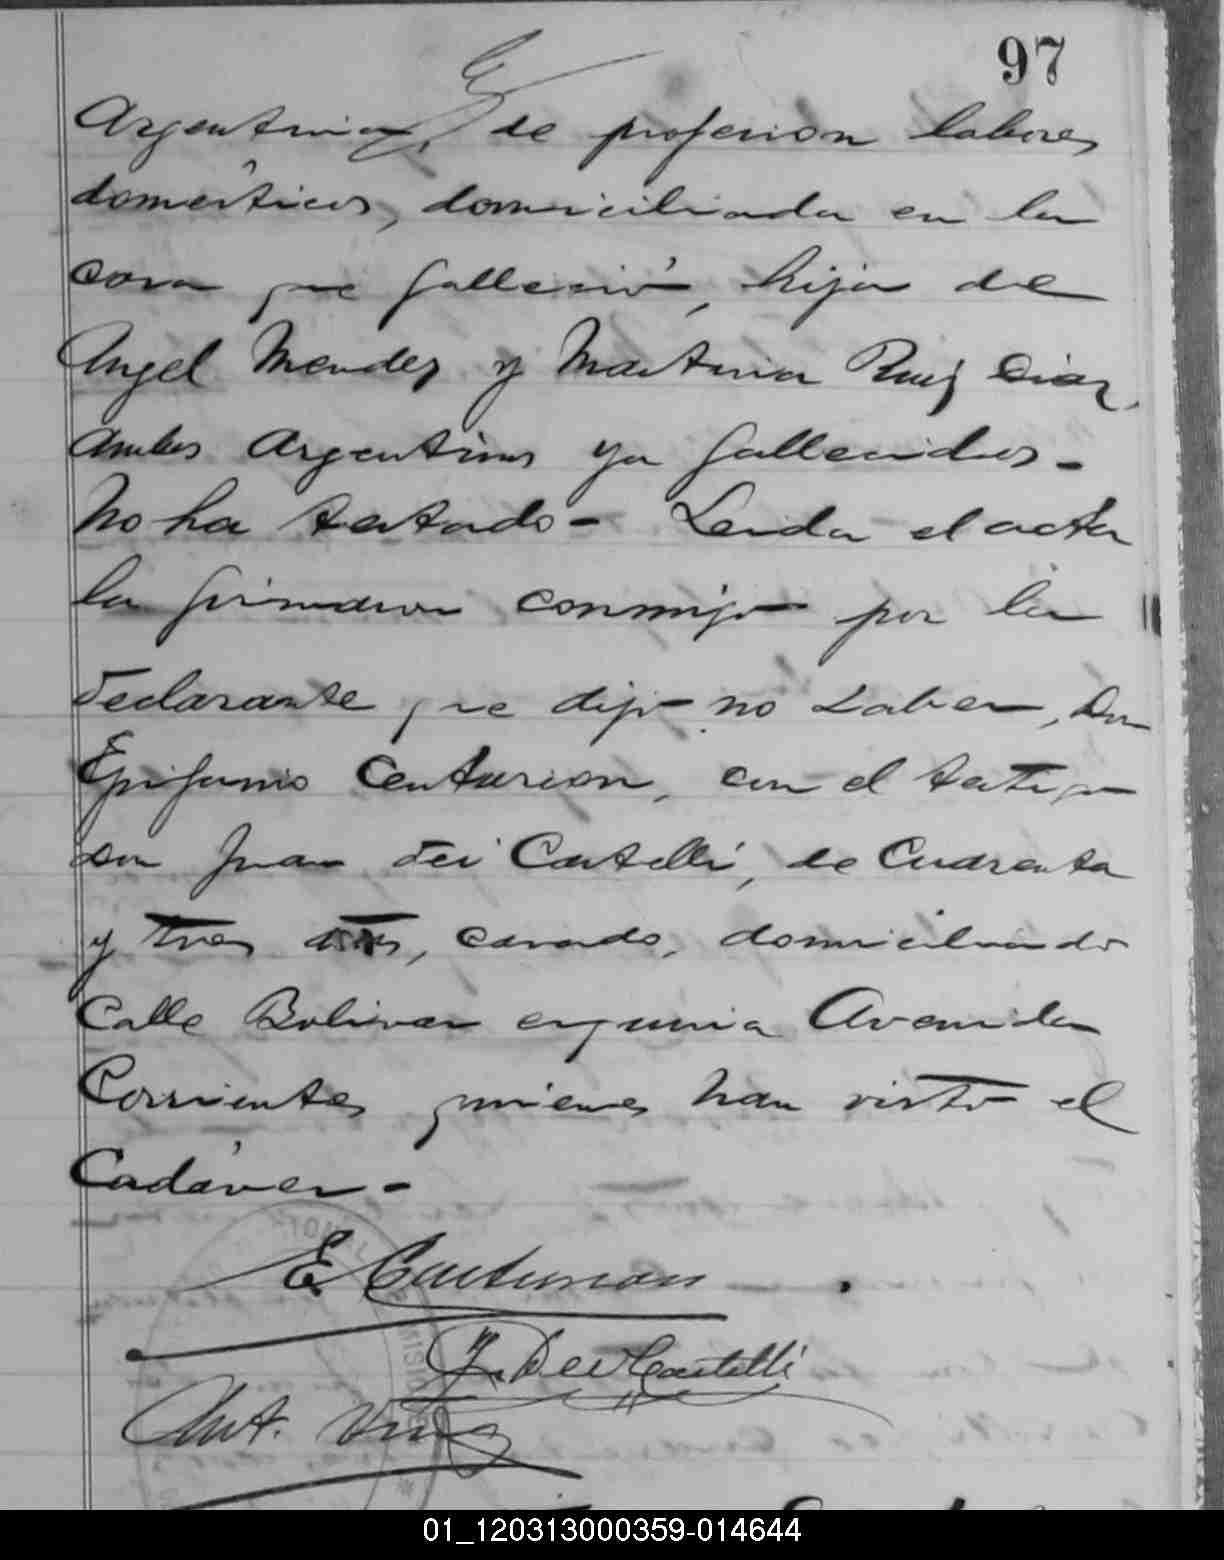 97
Argentina, de profesion labores
domésticos, domiciliada en la
casa que falleció, hija de
Angel Mendez y Martina Ruiz Diaz,
ambos Argentinos ya fallecidos-
No ha testado- Leida el acta
la firmaron conmigo por la
declarante que dijo no saber, Don
Epifanio Centurion, con el testigo
don Juan Dei Castelli, de Cuarenta
y tres años, casado, domiciliado
Calle Bolivar esquina Avenida
Corrientes quienes han visto el
Cadáver-
E Centurion
J. Dei Castelli
Ant.
01_120313000359-014644